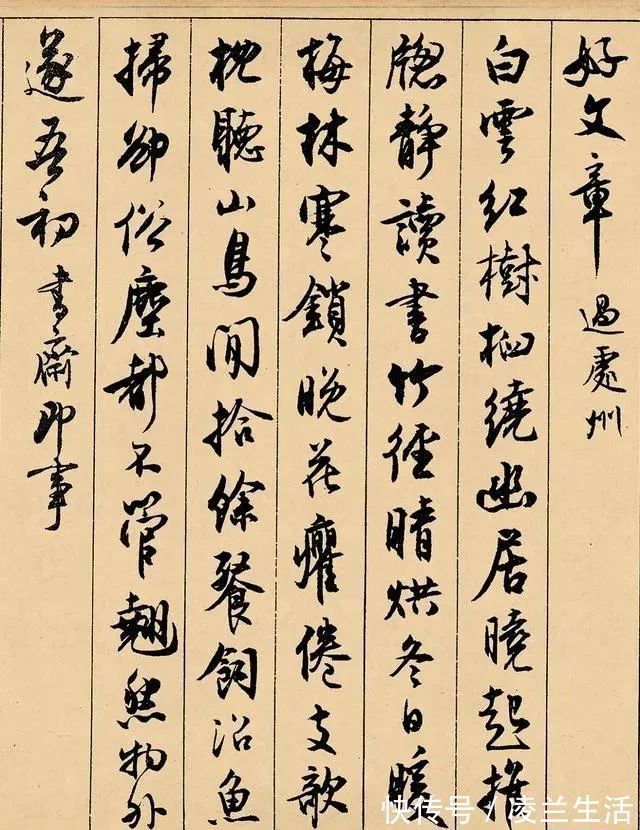 好文章 過處州
白雲紅樹繞幽居曉起推
牕靜讀書竹徑晴烘冬日暖
梅林寒鎖晚花癯倦支欹
枕聽山鳥閒拾餘餐飼沼魚
掃卻俗塵都不管翹然物外
遂吾初 書齋即事
快传号/凌兰生活